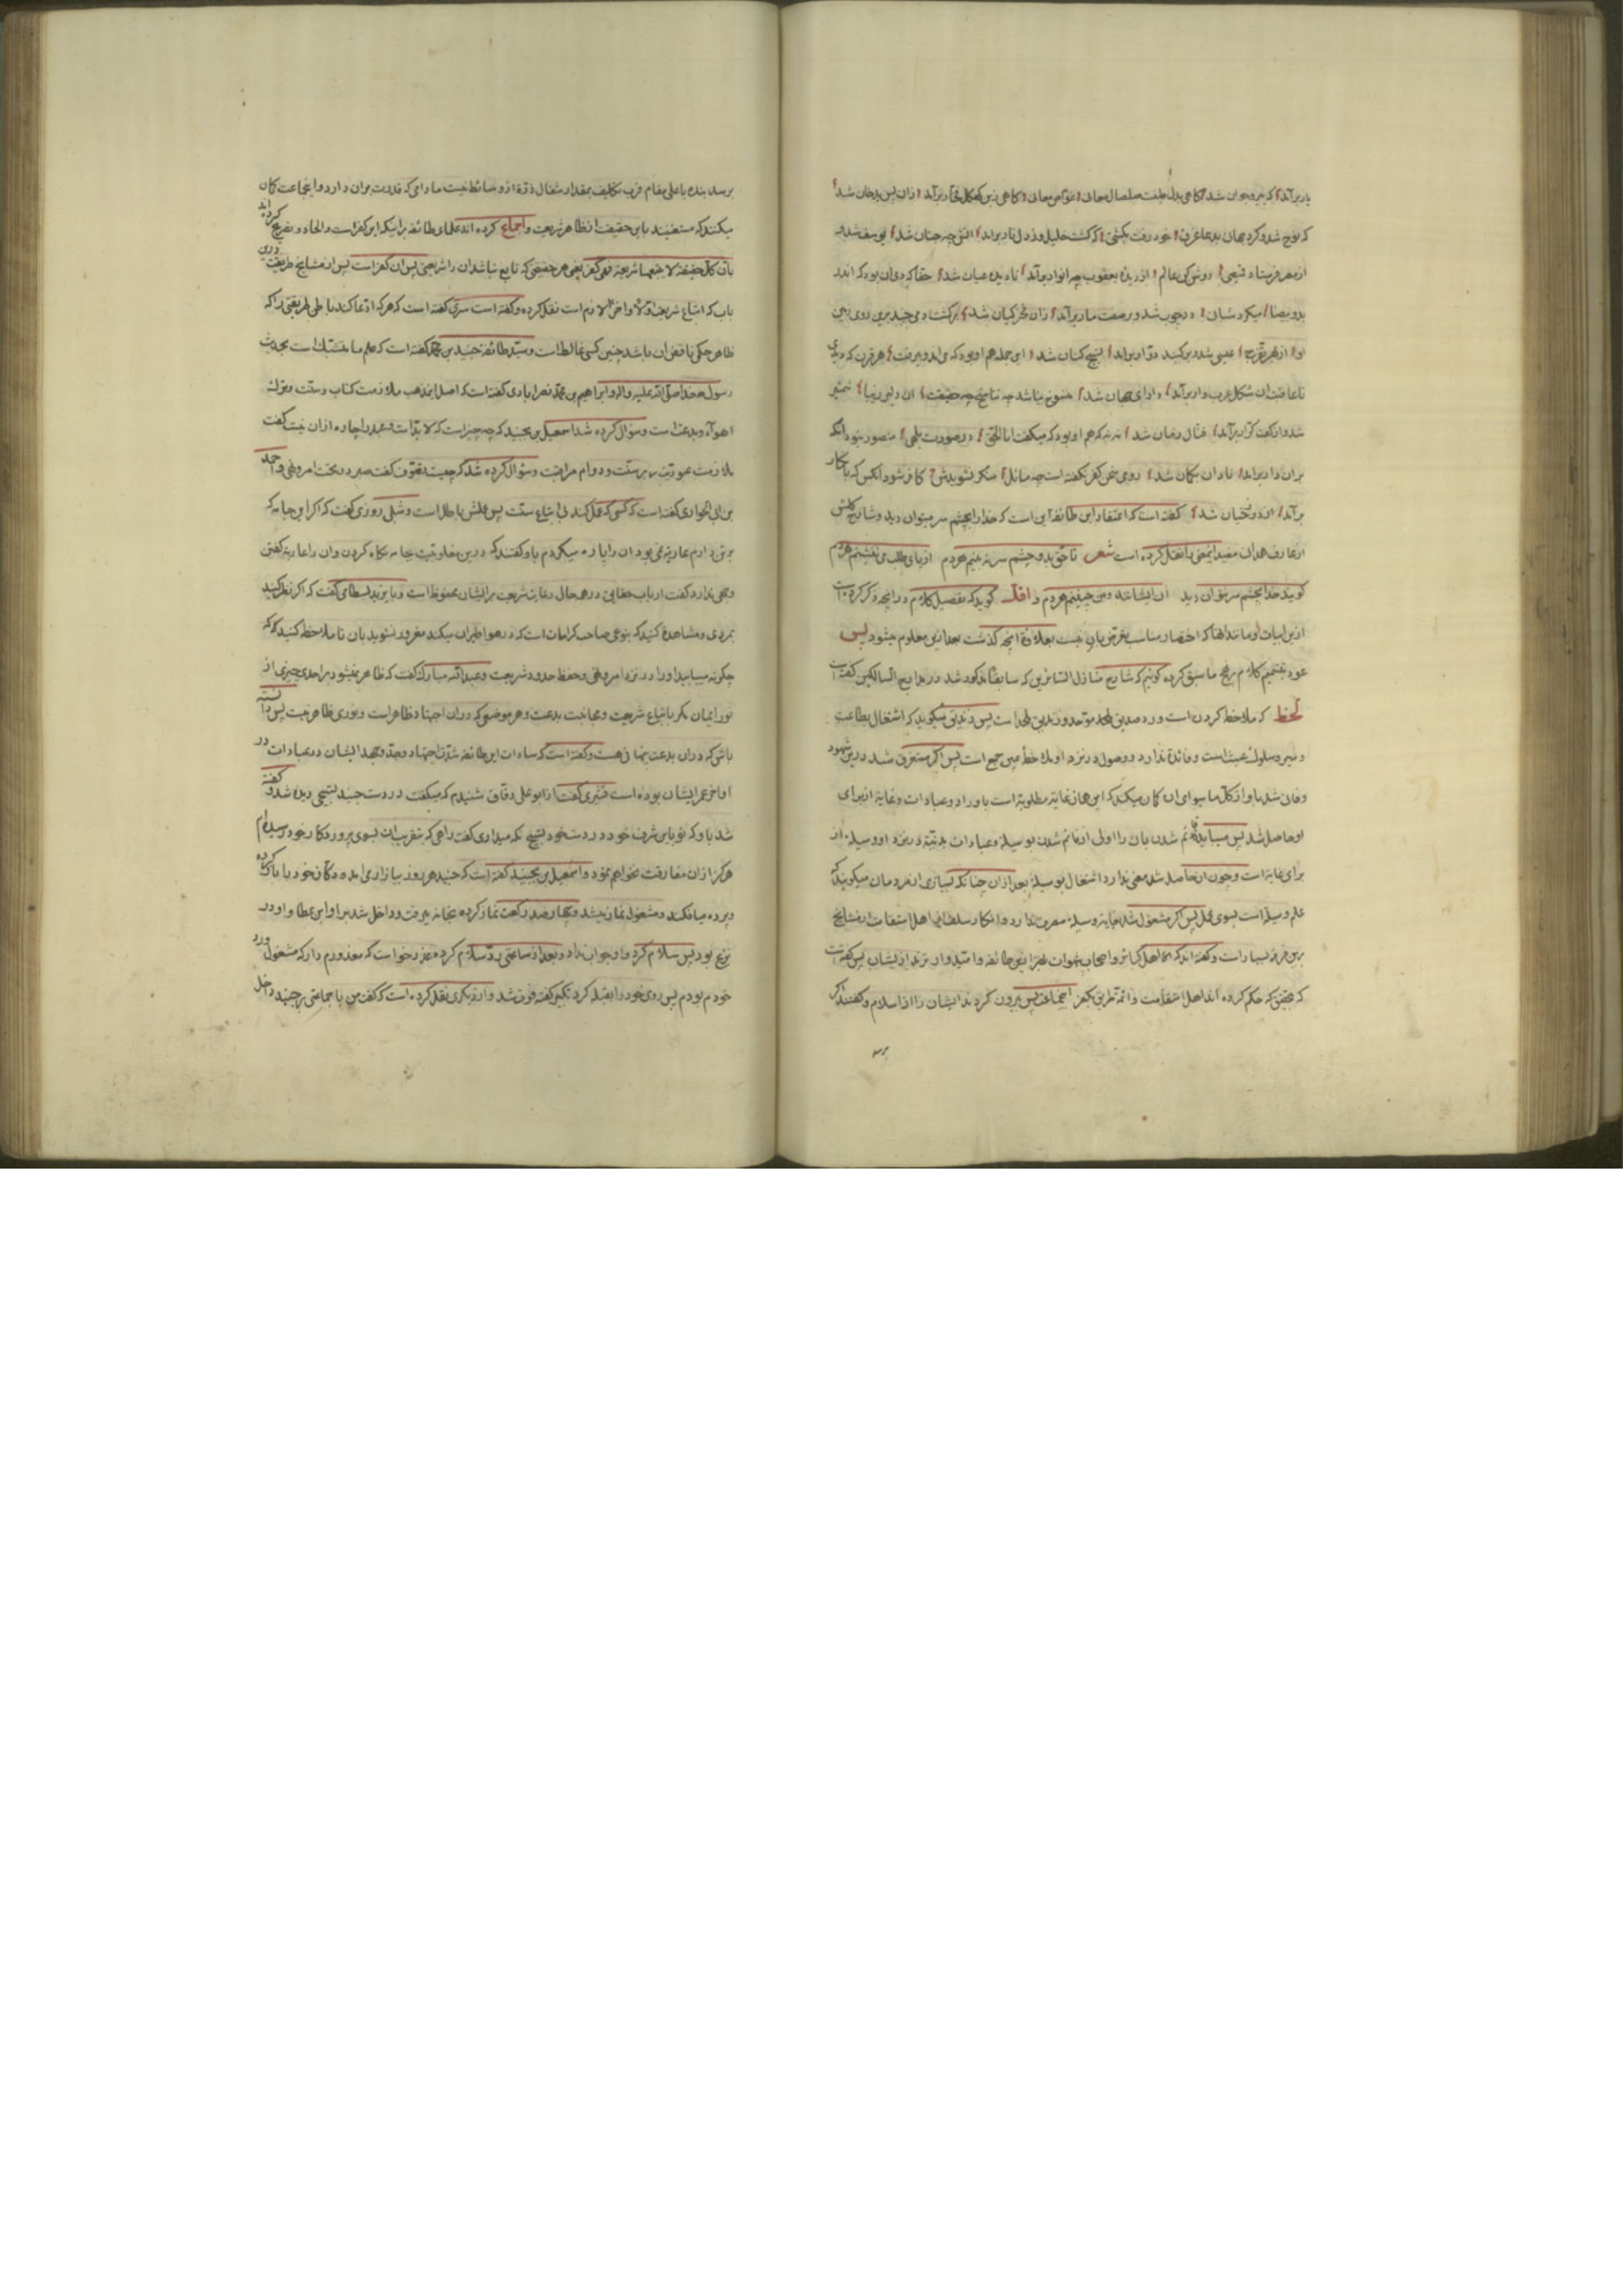 یار برآمد که پیر و جوان شد گاهی بدل طینت صلصال معانی غواص معانی گاهی ز بن کهکل فخار برآمد زان پس بدخان شد
که نوح شد و کرد جهان بدعا غرق خود رفت بکشتی که گشت خلیل و ز دل نار برآمد آتش چه جنان شد یوسف شد و
از مصر فرستاد قمیصی روشن کن عالم از دیده یعقوب چه انوار برآمد تا دیده عیان شد حقا که وی آن بود که اندر
ید و بیضا میکرد شبان در چوب شد و بر صفت مار برآمد زان فخر کیان شد برگشت دمی چند برین روی زمین
او از بهر تفرج عیسی شد و بر گنبد دوار برآمد تسبیح کنان شد این جمله هم او بود که می آمد و میرفت هر قرن که دیدی
تا عاقبت آن شکل عرب وار برآمد دارای جهان شد منسوخ نباشد چه تناسخ چه حقیقت آن دلبر زیبا شمشیر
شد و از کف کرار برآمد قتال زمان شد نه نه که هم او بود که میگفت انا الحق در صورت بلهی منصور نبود آنکه
بران دار برآمد نادان بگمان شد رومی سخن کفر نگفته است چه قائل منکر نشویدش کافر شود آنکس که بانکار
برآمد از دوزخیان شد گفته است که اعتقاد این طائفه این است که خدا را بچشم سر میتوان دید و شارح گلشن
از عارف همدان مفید این معنی را نقل کرده است شعر تا حق بدو چشم سر نه بینم هر دم از پای طلب می ننشینم هر دم
گویند خدا بچشم سر نتوان دید آن ایشانند و من چنینم هر دم و اقل گوید که تفصیل کلام در آنچه ذکر کرده است
ازین ابیات و مانند آنها که اختصار مناسب بغرض بیان نیست بعلاوه آنچه گذشت بعد ازین معلوم میشود پس
عود بتتمیم کلام بر نهج ما سبق کرده گوئیم که شارح منازل السائرین که سابقاً مذکور شد در مدارج السالکین گفته است
لحظ که ملاحظه کردن است و رد صدیق ملحد موحد و زندیق ملحد است پس زندیق میگوید که اشتغال بطاعت
و سیر و سلوک عبث است و فائده ندارد و وصول در نزد او ملاحظه عین جمع است پس اگر مستغرق شد درین شهود
و فانی شد باو از کل ما سوای آن گمان میکند که این همان غایة مطلوبه است باوراد و عبادات و غایة از برای
او حاصل شد پس میباید قائم شدن بآن را اولی از قائم شدن بوسیله و عبادات بدنیة در نزد او وسیله از
برای غایة است و چون آن حاصل شد معنی ندارد اشتغال بوسیله بعد از آن چنانکه بسیاری از مردمان میگویند که
علم وسیله است بسوی عمل پس اگر مشغول شد بغایة وسیله مصرف ندارد و انکار سلطان اهل استقامت از مشایخ
برین فرقه بسیار است و گفته اند که اهل کبائر و اصحاب شهوات بهتر ازین طائفه و امیدوارترند از ایشان پس گفته است
که بتحقیق که حکم کرده اند اهل استقامت و ائمه طریق بکفر این جماعت پس بیرون کردند ایشان را از اسلام و گفتند اگر
برسد
برسد بنده باعلی مقام قرب تکلیف بمقدار مثقال ذره از و ساقط نیست مادامی که قدرت بران دارد و این جماعت گمان
میکنند که مستغنیند باین حقیقت از ظاهر شریعت و اجماع کرده اند علمای طائفه بر اینکه این کفر است و الحاد و تصریح کرده اند
بان کل حقیقة لا یتبعها شریعة فهی کفر یعنی هر حقیقتی که تابع نباشد آن را شریعتی پس آن کفر است پس از مشایخ طریقت درین
باب که اتباع شریعت اولا و آخرا لازم است نقل کرده و گفته است سری گفته است که هر که ادعا کند باطن طریقتی را که
ظاهر حکمی ناقض آن باشد چنین کسی غالط است و سید طائفه جنید بن محمد گفته است که علم ما متشبک است بحدیث
رسول خدا صلی الله علیه و اله و ابراهیم بن محمد نصرابادی گفته است که اصل این مذهب ملازمت کتاب و سنت و ترک
اهواء و بدعت است و سؤال کرده شد اسمعیل بن نجید که چه چیز است که لابد است و عبد را چاره از آن نیست گفت
ملازمت عبودیت بر سنت و دوام مراقبت و سؤال کرده شد که چیست تصوف گفت صبر در تحت امر و نهی و احمد
بن ابی الحواری گفته است که کسی که عمل کند بی اتباع سنت پس عملش باطل است و شبلی روزی گفت که اگر این جامه که
بر تن دارم عاریه نمی بود آن را پاره میکردم باو گفتند که درین مغلوبیت جامه نگاه کردن و آن را عاریه گفتن
وجهی ندارد گفت ارباب حقایق در همه حال رعایت شریعت بر ایشان محفوظ است و بایزید بسطامی گفت که اگر نظر کنید
بمردی و مشاهده کنید که بنوعی صاحب کرامات است که در هوا طیران میکند مغرور نشوید بآن تا ملاحظه کنید که
چگونه میابید او را در نزد امر و نهی و حفظ حدود شریعت و عبد الله مبارک گفت که ظاهر نمیشود بر احدی چیزی از
نور ایمان مگر باتباع شریعت و مجانبت بدعت و هر موضعی که در آن اجتهاد ظاهر است و نوری ظاهر نیست پس دانسته
باش که در آن بدعت نهانی هست و گفته است که سادات این طائفه شدت اجتهاد و جد و جهد ایشان در عبادات در
اواخر عمر ایشان بوده است قشیری گفت از ابو علی دقاق شنیدم که میگفت در دست جنید تسبیحی دیده شد و گفته
شد باو که تو باین شرف خود در دست خود تسبیح نگه میداری گفت راهی که بتقریب آن بسوی پروردگار خود رسیده ام
هرگز از آن مفارقت نخواهم نمود و اسمعیل بن نجید گفته است که جنید هر روز ببازار می آمد و دکان خود را باز کرده
و پرده میافکند و مشغول نماز میشد و چهار صد رکعت نماز کرده بخانه میرفت و داخل شد بر او ابن عطا و او در
نزع بود پس سلام کرد و او جواب نداد و بعد از ساعتی رد سلام کرده عذر خواست که معذورم دار که مشغول ورد
خودم بودم پس روی خود را بقبله کرد تکبیر گفته فوت شد و از بکری نقل کرده است که گفت من با جماعتی بر جنید داخل